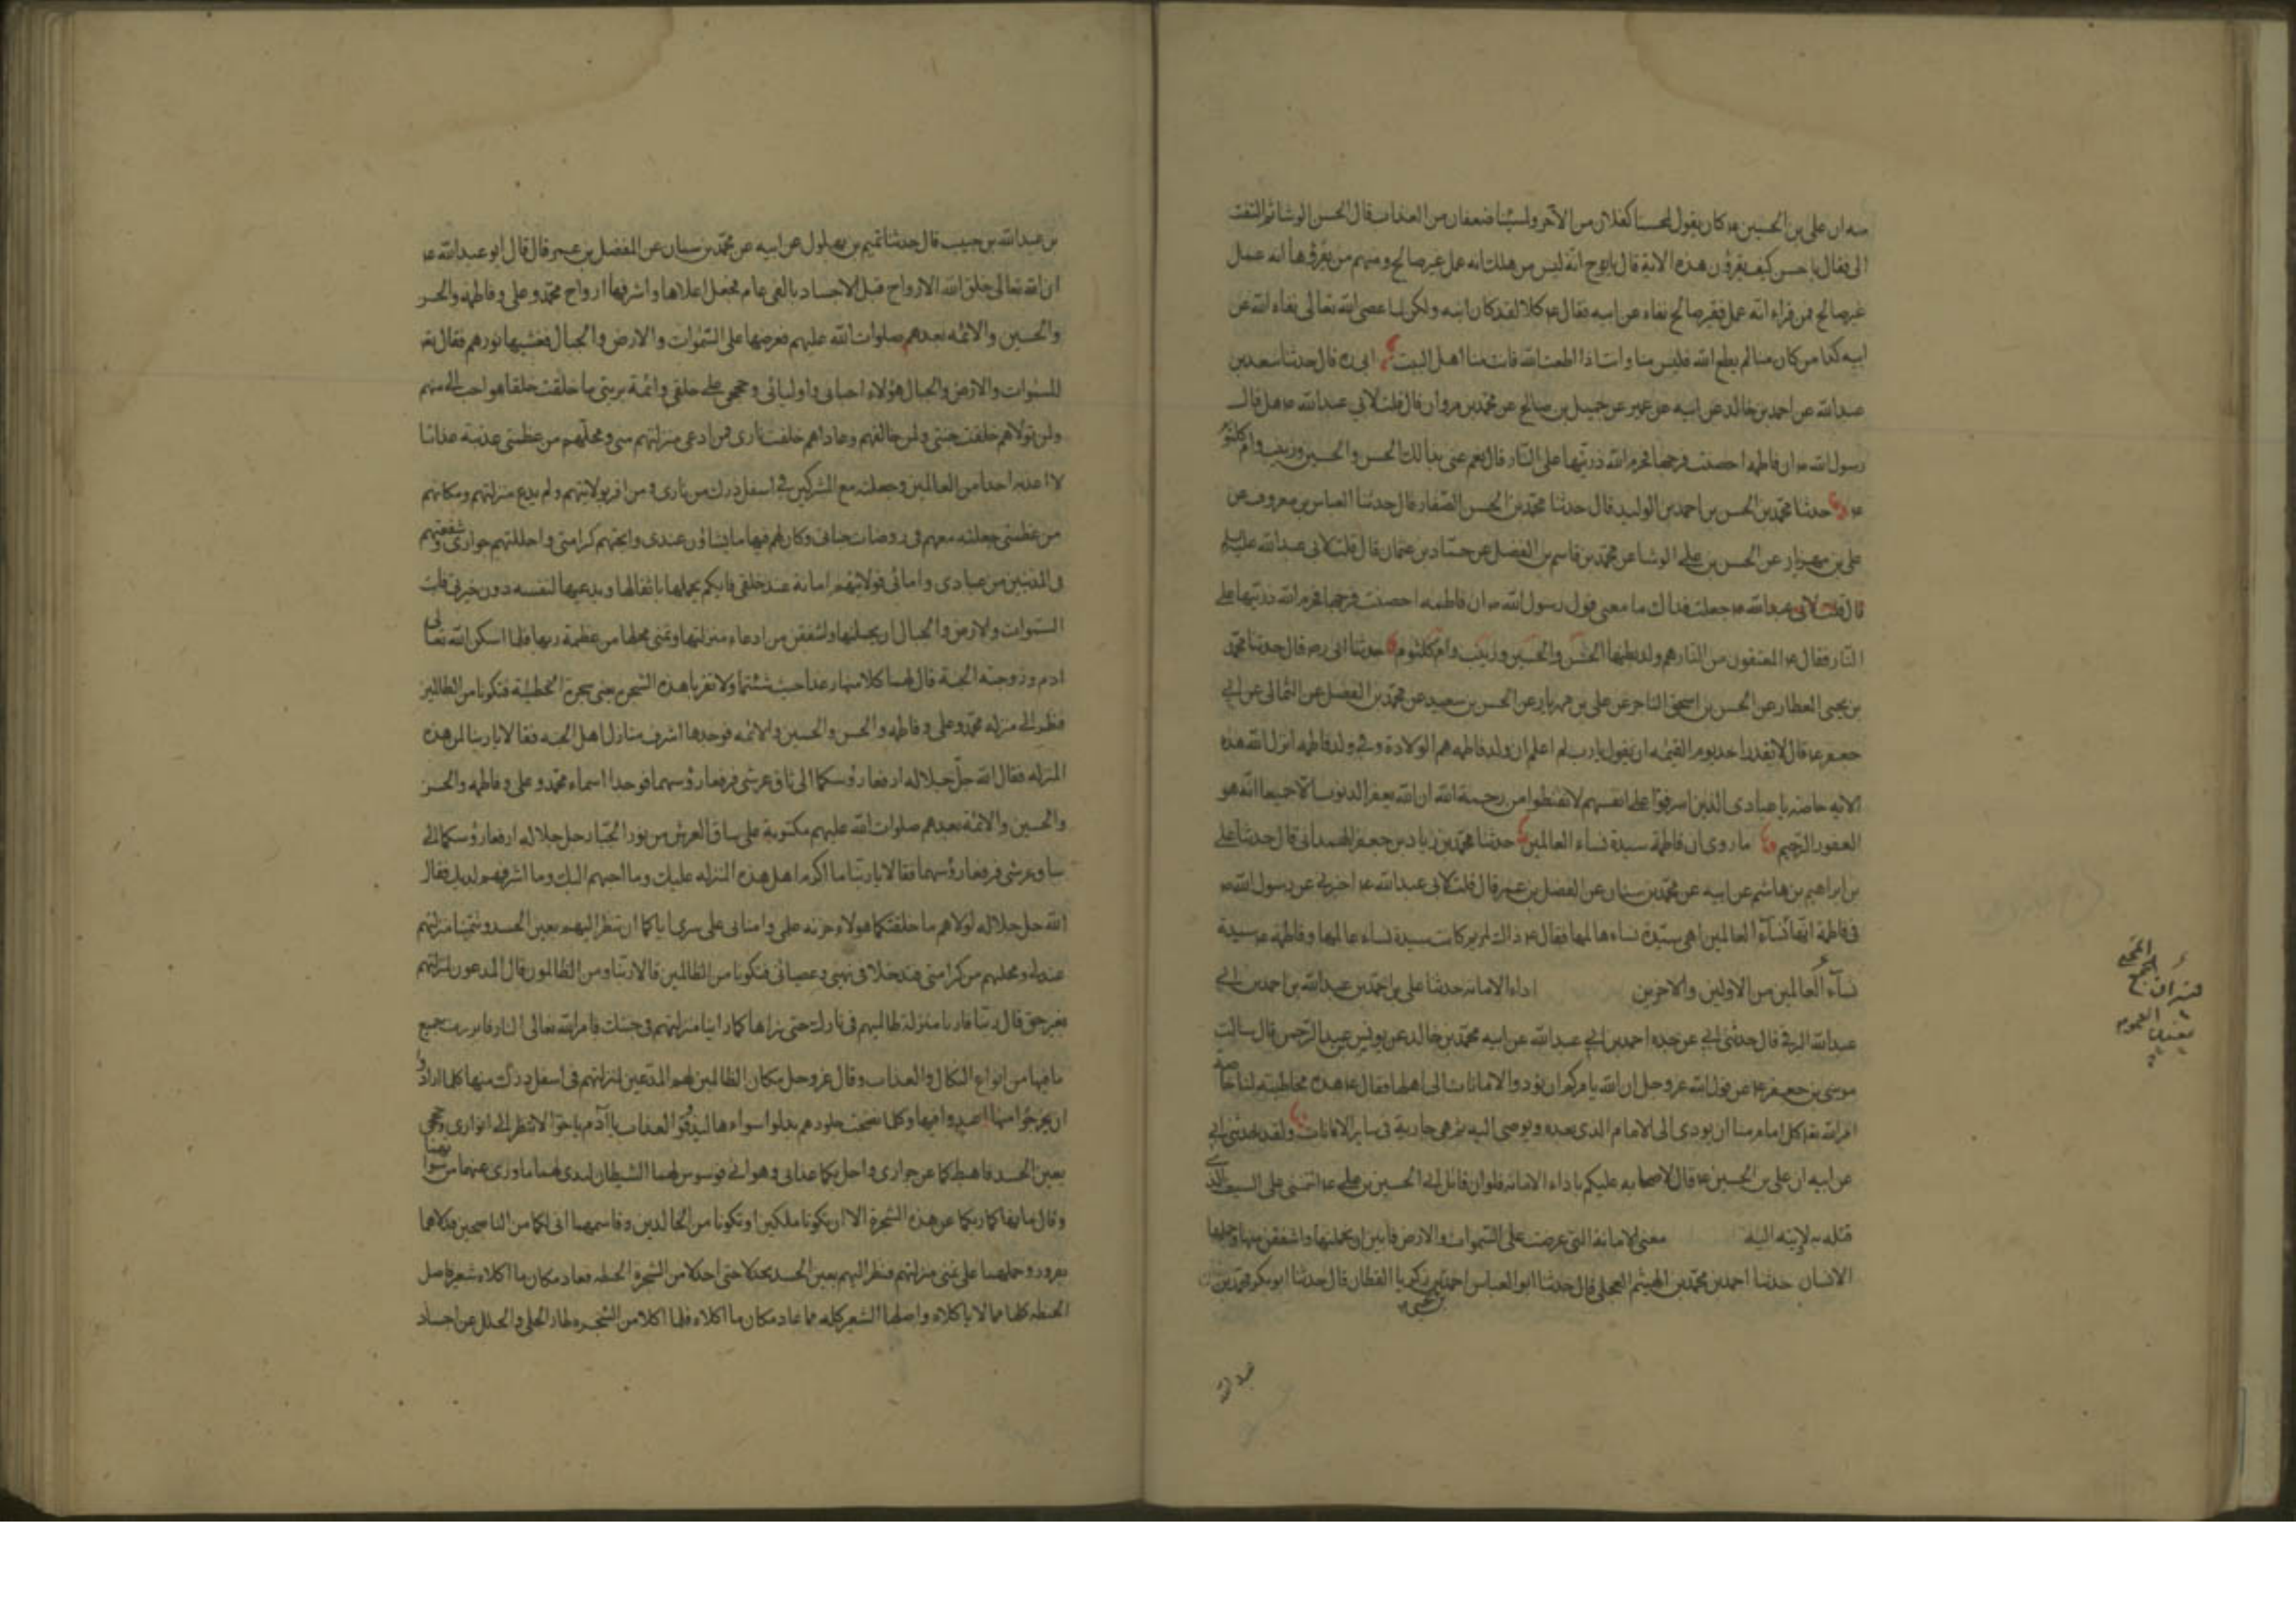 منه ان علی بن الحسین ع کان یقول لمحسنا کفلان من الاجر ولمسیئنا ضعفان من العذاب قال الحسن الوشا ثم التفت
الی فقال یا حسن کیف یقرؤن هذه الایة قال یا نوح انه لیس من اهلک انه عمل غیر صالح ومنهم من یقرؤها انه عمل
غیر صالح فمن قراء انه عمل غیر صالح نفاه عن ابیه فقال ع کلا لقد کان ابنه ولکن لما عصی الله تعالی نفاه الله عن
ابیه کذا من کان منا لم یطع الله فلیس منا وانت اذا اطعت الله فانت منا اهل البیت ابی ره قال حدثنا سعد بن
عبدالله عن احمد بن خالد عن ابیه عن عن جمیل بن صالح عن محمد بن مروان قال قلت لابی عبدالله ع هل قال
رسول الله ص ان فاطمه احصنت فرجها فحرم الله ذریتها علی النار قال نعم عنی بذالک الحسن والحسین وزینب وام کلثوم
ع حدثنا محمد بن الحسن بن احمد بن الولید قال حدثنا محمد بن الحسن الصفار قال حدثنا العباس بن معروف عن
علی بن مهزیار عن الحسن بن علی الوشا عن محمد بن قاسم بن الفضل عن حماد بن عثمان قال قلت لابی عبدالله علیه
قال قلت لابی عبدالله ع جعلت فداک ما معنی قول رسول الله ص ان فاطمه احصنت فرجها فحرم الله ذریتها علی
النار فقال ع المعتقون من النار هم ولد بطنها الحسن والحسین وزینب وام کلثوم حدثنا ابی ره قال حدثنا محمد
بن یحیی العطار عن الحسن بن اسحق التاجر عن علی بن مهزیار عن الحسن بن سعید عن محمد بن الفضل عن الثمالی عن ابی
جعفر ع قال لا یقدر احد یوم القیمه ان یقول یا رب لم اعلم ان ولد فاطمه هم الولاة وفی ولد فاطمه انزل الله هذه
الایه خاصه یا عبادی الذین اسرفوا علی انفسهم لا تقنطوا من رحمة الله ان الله یغفر الذنوب جمیعا انه هو
الغفور الرحیم ما روی ان فاطمة سیدة نساء العالمین حدثنا محمد بن زیاد بن جعفر الهمدانی قال حدثنا علی
بن ابراهیم بن هاشم عن ابیه عن محمد بن سنان عن المفضل بن عمر قال قلت لابی عبدالله ع اخبرنی عن رسول الله ص
فی فاطمة انها نساء العالمین اهی سیدة نساء عالمها فقال ع ذاک لمریم کانت سیدة نساء عالمها وفاطمه ع سیدة
نساء العالمین من الاولین والاخرین اداء الامانه حدثنا علی بن احمد بن عبدالله بن احمد بن ابی
عبدالله البرقی قال حدثنی ابی عن جده احمد بن ابی عبدالله عن ابیه محمد بن خالد عن یونس عبدالرحمن قال سالت
موسی بن جعفر ع عن قول الله عز وجل ان الله یامرکم ان تؤدوا الامانات الی اهلها فقال ع هذه مخاطبته لنا خاصة
امر الله تعا کل امام منا ان یودی الی الامام الذی بعده ویوصی الیه ثم هی جاریة فی سایر الامانات ولقد حدثنی ابی
عن ابیه ان علی بن الحسین ع قال لاصحابه علیکم باداء الامانه فلو ان قاتل ابی الحسین بن علی ع ائتمننی علی السیف الذی
قتله به لادیته الیه معنی الامانة التی عرضت علی السموات والارض فابین ان یحملنها واشفقن منها وحملها
الانسان حدثنا احمد بن محمد بن الهیثم العجلی قال حدثنا ابوالعباس احمد بن یحیی بن زکریا القطان قال حدثنا ابوبکر محمد بن
عبدالله
بن عبدالله بن حبیب قال حدثنا تمیم بن بهلول عن ابیه عن محمد بن سنان عن المفضل بن عمر قال قال ابو عبدالله ع
ان الله تعالی خلق الله الارواح قبل الاجساد بالفی عام فجعل اعلاها واشرفها ارواح محمد وعلی وفاطمه والحسن
والحسین والائمه بعدهم صلوات الله علیهم فعرضها علی السموات والارض والجبال فغشیها نورهم فقال تع
للسموات والارض والجبال هؤلاء احبائی واولیائی وحججی علی خلقی وائمة بریتی ما خلقت خلقا هو احب الی منهم
ولمن تولاهم خلقت جنتی ولمن خالفهم وعاداهم خلقت ناری فمن ادعی منزلتهم منی ومحلهم من عظمتی عذبته عذابا
لا اعذبه احدا من العالمین وجعلته مع المشرکین فی اسفل درک من ناری ومن اقر بولایتهم ولم یدع منزلتهم ومکانهم
من عظمتی جعلته معهم فی روضات جناتی وکان لهم فیها ما یشاؤن عندی وابحتهم کرامتی واحللتهم جواری وشفعتهم
فی المذنبین من عبادی وامائی فولایتهم امانة عند خلقی فایکم یحملها باثقالها ویدعیها لنفسه دون خیرتی فابت
السموات والارض والجبال ان یحملنها واشفقن من ادعاء منزلتها وتمنی محلها من عظمة ربها فلما اسکن الله تعالی
ادم وزوجته الجنة قال لهما کلا منها رغدا حیث شئتما ولا تقربا هذه الشجرة یعنی شجرة الحنطة فتکونا من الظالمین
فنظرا الی منزله محمد وعلی وفاطمه والحسن والحسین والائمه فوجدها اشرف منازل اهل الجنه فقالا یا ربنا لمن هذه
المنزله فقال الله جل جلاله ارفعا رؤسکما الی ساق عرشی فرفعا رؤسهما فوجدا اسماء محمد وعلی وفاطمه والحسن
والحسین والائمة بعدهم صلوات الله علیهم مکتوبة علی ساق العرش من نور الجبار جل جلاله ارفعا رؤسکما الی
ساق عرشی فرفعا رؤسهما فقالا یا ربنا ما اکرم اهل هذه المنزله علیک وما احبهم الیک وما اشرفهم لدیک فقال
الله جل جلاله لولاهم ما خلقتکما هولاء خزنه علمی وامنائی علی سری ایاکما ان تنظرا الیهم بعین الحسد وتتمنیا منزلتهم
عندی ومحلهم من کرامتی فتدخلا فی نهیی وعصیانی فتکونا من الظالمین قالا ربنا ومن الظالمون قال المدعون لمنزلتهم
بغیر حق قال ربنا فارنا منزلة ظالمیهم فی نارک حتی نراها کما راینا منزلتهم فی جنتک فامر الله تعالی النار فابرزت جمیع
ما فیها من انواع النکال والعذاب وقال عز وجل مکان الظالمین لهم المدعین لمنزلتهم فی اسفل درک منها کلما ارادوا
ان یخرجوا منها اعیدوا فیها وکلما نضجت جلودهم بدلوا سواها لیذوقوا العذاب یا آدم یا حوا لا تنظرا الی انواری وحججی
بعین الحسد فاهبطکما عن جواری واحل بکما عذابی وهوانی فوسوس لهما الشیطان لیبدی لهما ما وری عنهما من سوآتهما
وقال ما نهاکما ربکما عن هذه الشجرة الا ان تکونا ملکین او تکونا من الخالدین وقاسمهما انی لکما من الناصحین فدلاهما
بغرور وحملهما علی تمنی منزلتهم فنظرا الیهم بعین الحسد فخذلا حتی اکلا من الشجرة الحنطه فعاد مکان ما اکلاه شعیر فاصل
الحنطه کلها مما لا یاکلاه واصلها الشعیر کله مما عاد مکان ما اکلاه فلما اکلا من الشجره طار الحلی والحلل عن اجساد